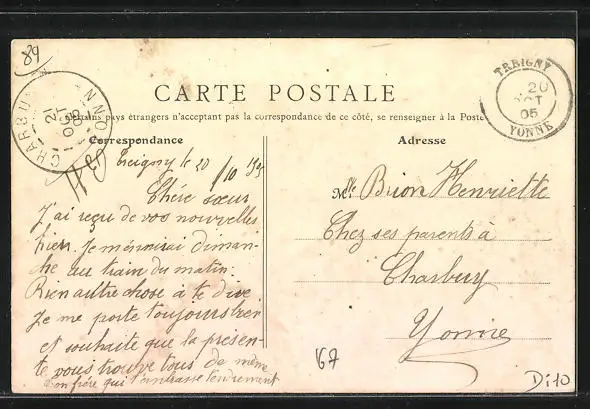 89
CARTE POSTALE
Certains pays étrangers n'acceptant pas la correspondance de ce côté, se renseigner à la Poste
Correspondance
Treigny le 20/10
Chére sœur
J'ai reçu de vos nouvelles
hier. Je diman-
che au train du matin.
Rien autre chose à te dire
Je me porte toujours bien
et souhaite que la présen-
te vous trouve tous de même
Ton frére qui t'embrasse tendrement
Adresse
Mlle Brion Henriette
Chez ses parents à
Charbuy
Yonne
TREIGNY
20
OCT
05
YONNE
CHARBU
21
OCT
05
YONN
67
Di10